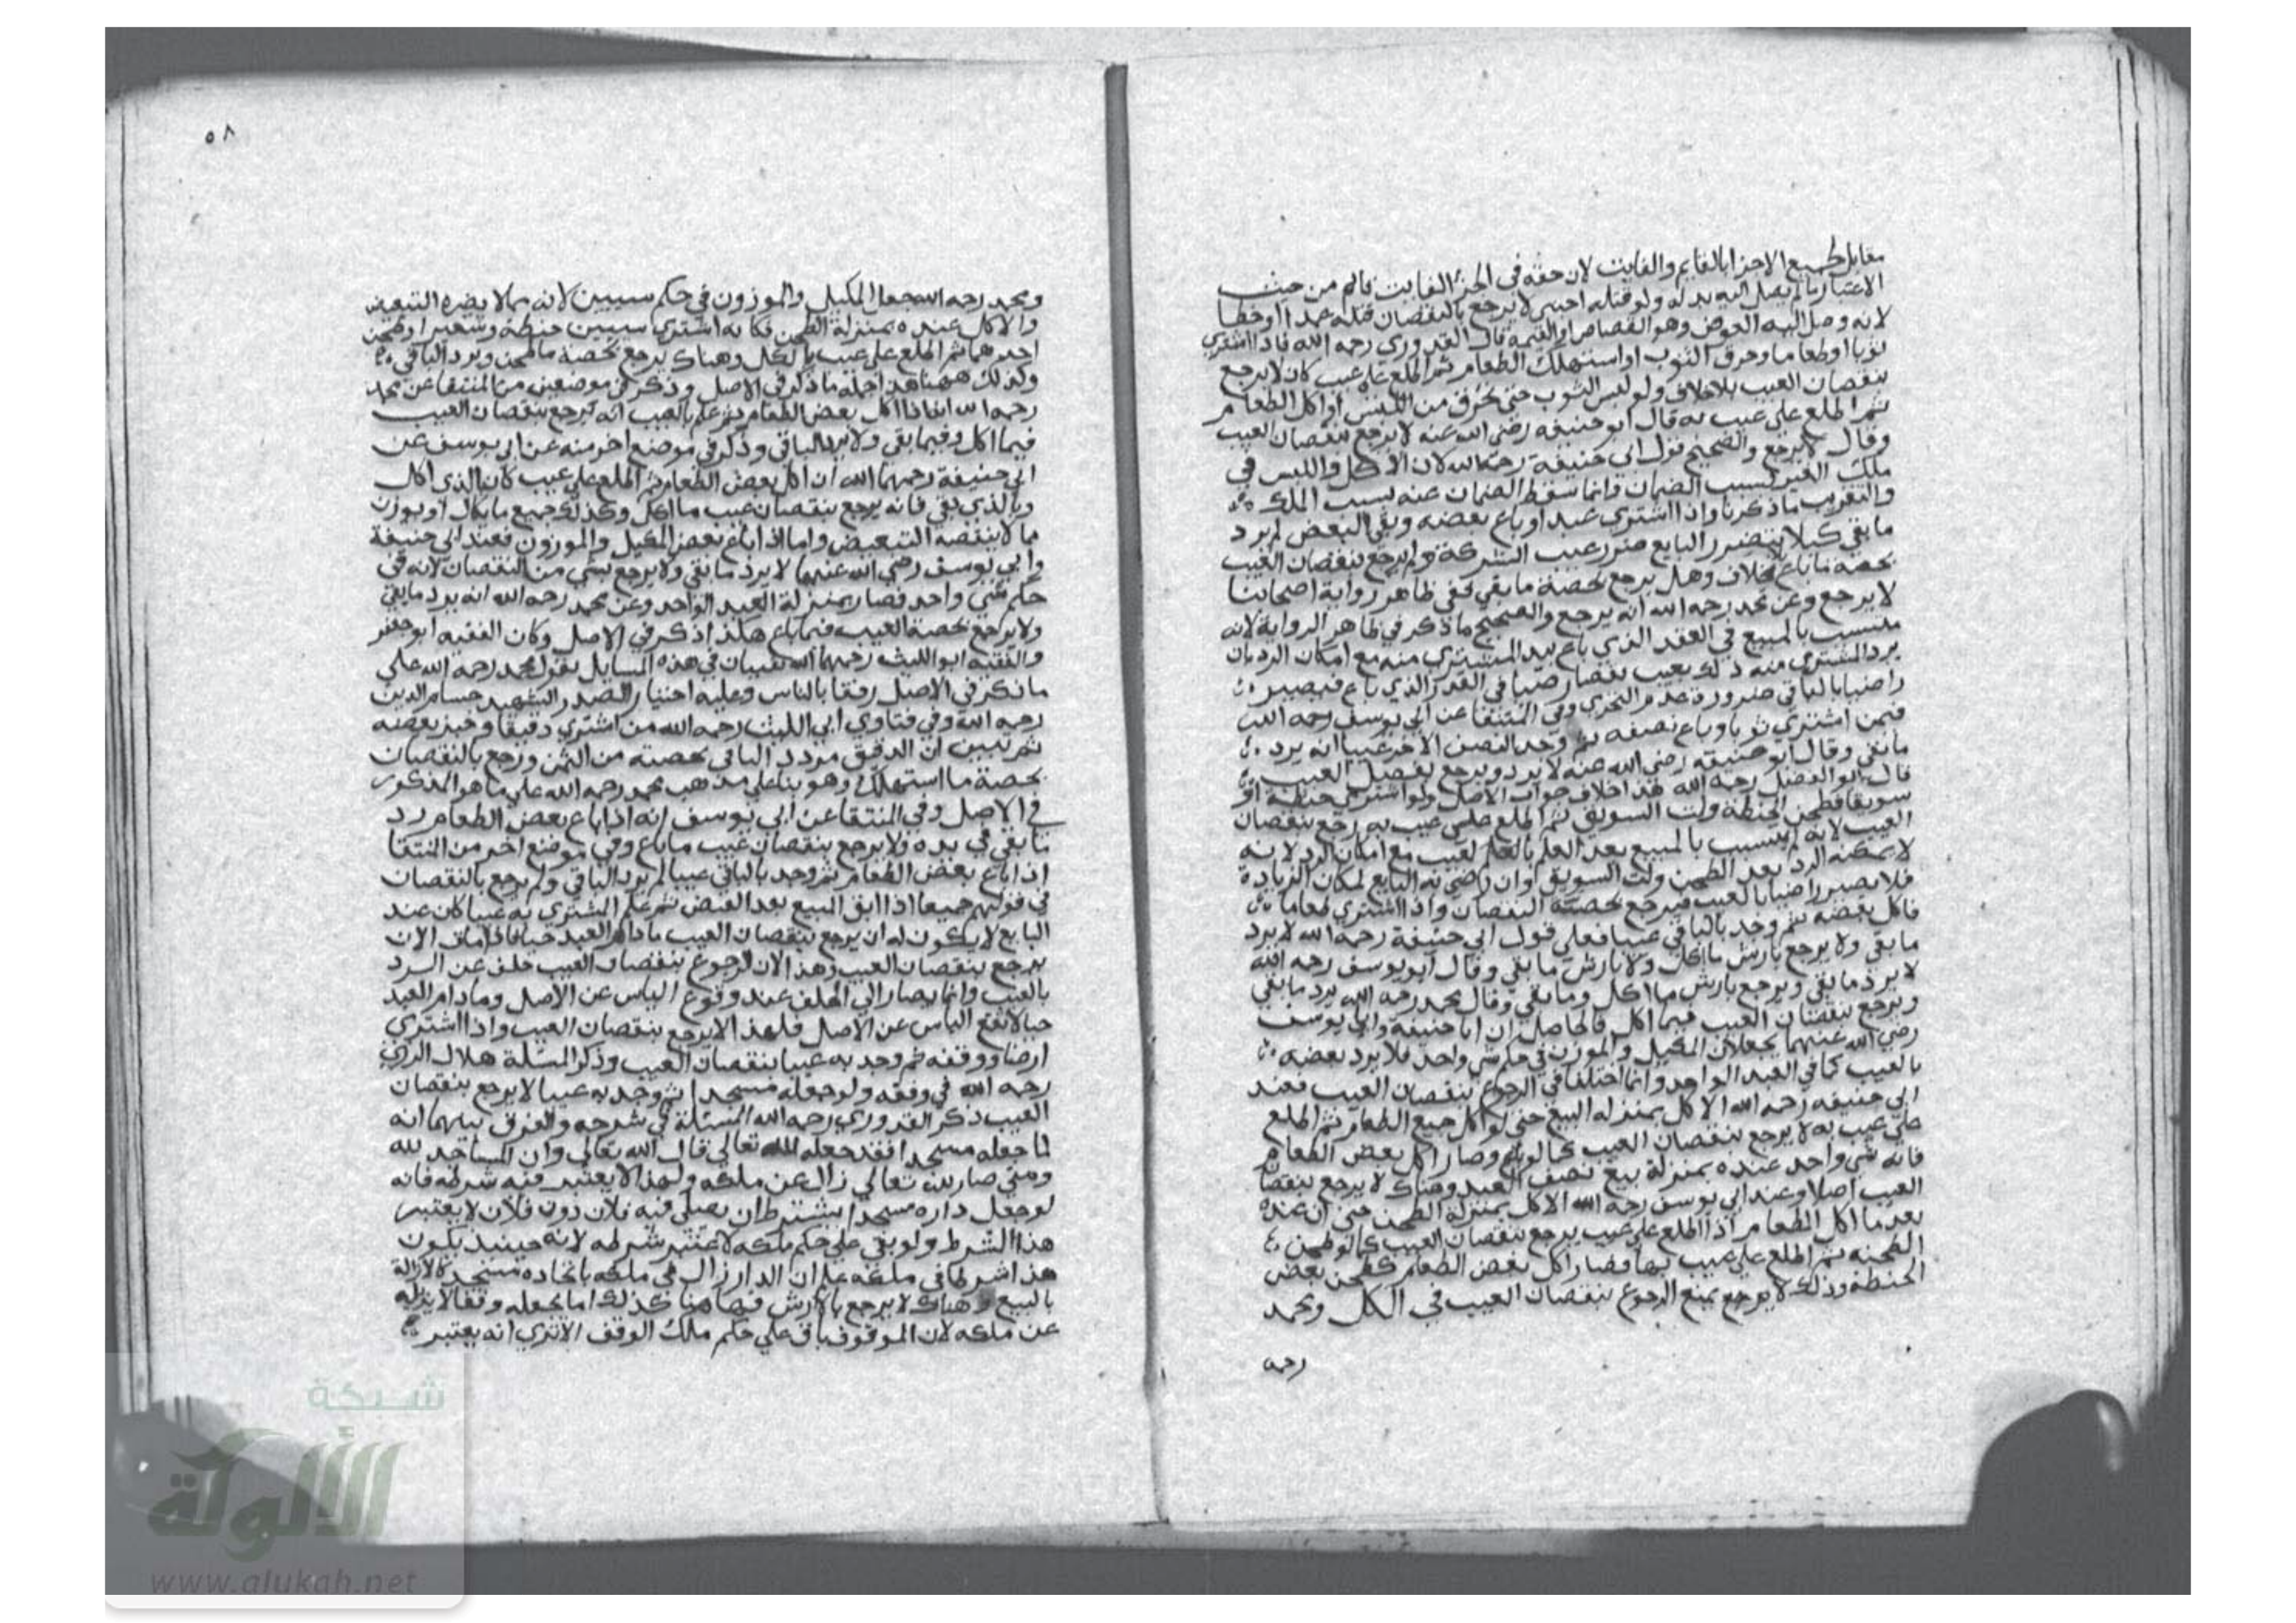 مقابل بجميع الاجزا بالقايم والفايت لان حقه في الجزء الفايت قائم من حيث
الاعتبار ما لم يصل اليه بدله ولو قتله اجنبي لا يرجع بالنقصان قتله عمدا او خطا
لانه وصل اليه العوض وهو القصاص او القيمة قال القدوري رحمه الله فاذا اشتري
ثوبا او طعاما وحرق الثوب او استهلك الطعام ثم اطلع علي عيب كان لا يرجع
بنقصان العيب بلا خلاف ولو لبس الثوب حتي تخرق من اللبس او اكل الطعام
ثم اطلع علي عيب به قال ابو حنيفه رضي الله عنه لا يرجع بنقصان العيب
وقال لا يرجع والصحيح قول ابي حنيفة رحمه الله لان الاكل واللبس في
ملك الغير لسبب الضمان وانما سقط الضمان عنه بسبب الملك
والتقريب ما ذكرنا واذا اشتري عبدا وباع بعضه وبقي البعض لم يرد
ما بقي كيلا يتضرر البايع ضرر عيب الشركة ولم يرجع بنقصان العيب
بحصة ما باع بخلاف وهل يرجع بحصة ما بقي ففي ظاهر رواية اصحابنا
لا يرجع وعن محمد رحمه الله انه يرجع والصحيح ما ذكر في ظاهر الرواية لانه
متسبب بالمبيع في العقد الذي باع بيد المشتري منه مع امكان الرد بان
يرد المشتري منه ذلك بعيب فصار رضيا في القدر الذي باع فيصير
راضيا بالباقي ضرورة عدم التجزي وفي المنتقا عن ابي يوسف رحمه الله
فيمن اشتري ثوبا وباع نصفه ثم وجد النصف الاخر عيبا انه يرد
ما بقي وقال ابو حنيفه رضي الله عنه لا يرد ويرجع بفضل العيب
قال ابو الفضل رحمه الله هذا خلاف جواب الاصل ولو اشتري حنطة او
سويقا فطحن الحنطة ولت السويق ثم اطلع علي عيب به رجع بنقصان
العيب لانه لم يتسبب بالمبيع بعد العلم بالعلم لعيب مع امكان الرد لانه
لا يمكنه الرد بعد الطحن ولت السويق وان رضي به البايع لمكان الزيادة
فلا يصير راضيا بالعيب فيرجع بحصته النقصان واذا اشتري طعاما
فاكل بعضه ثم وجد بالباقي عيبا فعلي قول ابي حنيفة رحمه الله لا يرد
ما بقي ولا يرجع بارش ما اكل ولا بارش ما بقي وقال ابو يوسف رحمه الله
لا يرد ما بقي ويرجع بارش ما اكل وما بقي وقال محمد رحمه الله يرد ما بقي
ويرجع بنقصان العيب فيما اكل فالحاصل ان ابا حنيفة وابي يوسف
رضي الله عنهما يجعلان المكيل والموزن في حكم شي واحد فلا يرد بعضه
بالعيب كما في العبد الواحد وانما اختلفا في الرجوع بنقصان العيب فعند
ابي حنيفه رحمه الله الاكل بمنزله البيع حتي لو اكل جميع الطعام ثم اطلع
علي عيب به لا يرجع بنقصان العيب كما لو باع وصار اكل بعض الطعام
فانه شي واحد عنده بمنزلة بيع نصف العبد وهناك لا يرجع بنقصان
العيب اصلا وعند ابي يوسف رحمه الله الاكل بمنزلة الطحن حتي ان عنده
بعد ما اكل الطعام اذا اطلع علي عيب يرجع بنقصان العيب كما لو طحن
الطحنه ثم اطلع علي عيب بها فصار اكل بعض الطعام كطحن بعض
الحنطة وذلك لا يرجع يمنع الرجوع بنقصان العيب في الكل ومحمد
رحمه
٥٨
ومحمد رحمه الله جعل المكيل والموزون في حكم سببين لانه مما لا يضره التبعيض
والاكل عنده بمنزلة الطحن فكانه اشتري سببين حنطة وشعيرا وطحن
احدهما ثم اطلع علي عيب بالكل وهناك يرجع بحصة ما طحن ويرد الباقي
وكذلك ههنا هذا جملة ما ذكر في الاصل وذكر في موضعين من المنتقا عن محمد
رحمه الله انه اذا اكل بعض الطعام ثم علم بالعيب انه يرجع بنقصان العيب
فيما اكل وفيما بقي ولا يرد الباقي وذكر في موضع اخر منه عن ابي يوسف عن
ابي حنيفة رحمهما الله ان اكل بعض الطعام ثم اطلع علي عيب كان بالذي اكل
وبالذي بقي فانه يرجع بنقصان عيب ما اكل وكذلك جميع ما يكال او يوزن
مما لا ينقصه التبعيض واما اذا باع بعض المكيل والموزون فعند ابي حنيفة
وابي يوسف رضي الله عنهما لا يرد ما بقي ولا يرجع بشي من النقصان لانه في
حكم شي واحد فصار بمنزلة العبد الواحد وعن محمد رحمه الله انه يرد ما بقي
ولا يرجع بحصة العيب فيما باع هكذا ذكر في الاصل وكان الفقيه ابو جعفر
والفقيه ابو الليث رحمهما الله يفتيان في هذه المسايل بقول محمد رحمه الله علي
ما ذكر في الاصل رفقا بالناس وعليه اختيار الصدر الشهيد حسام الدين
رحمه الله وفي فتاوي ابي الليث رحمه الله من اشتري دقيقا وخبز بعضه
ثم تبين ان الدقيق مر رد الباقي بحصته من الثمن ورجع بالنقصان
بحصة ما استهلك وهو بنا علي مذهب محمد رحمه الله علي ما هو المذكور
في الاصل وفي المنتقا عن ابي يوسف انه اذا باع بعض الطعام رد
ما بقي في يده ولا يرجع بنقصان عيب ما باع وفي موضع اخر من المنتقا
اذا باع بعض الطعام ثم وجد بالباقي عيبا لم يرد الباقي ولم يرجع بالنقصان
في قولهم جميعا اذا ابق المبيع بعد القبض ثم علم المشتري به عيبا كان عند
البايع لا يكون له ان يرجع بنقصان العيب ما دام العبد حيا فاذا مات الان
يرجع بنقصان العيب وهذا لان الرجوع بنقصان العيب خلف عن الرد
بالعيب وانما يصار الي الخلف عند وقوع الياس عن الاصل وما دام العبد
حيا لا يقع الياس عن الاصل فلهذا لا يرجع بنقصان العيب واذا اشتري
ارضا ووقفه ثم وجد به عيبا بنقصان العيب وذكر المسئلة هلال الراي
رحمه الله في وقفه ولو جعله مسجدا ثم وجد به عيبا لا يرجع بنقصان
العيب ذكر القدوري رحمه الله المسئلة في شرحه والفرق بينهما انه
لما جعله مسجدا فقد جعله لله تعالي قال الله تعالي وان المساجد لله
ومتي صار لله تعالي زال عن ملكه ولهذا لا يعتبر فيه شرطه فانه
لو جعل داره مسجدا يشترط ان يصلي فيه فلان دون فلان لا يعتبر
هذا الشرط ولو بقي علي حكم ملكه لاعتبر شرطه لانه حينيذ يكون
هذا شرطا في ملكه علم ان الدار زال في ملكه باتخاده مسجدا كالازالة
بالبيع وهناك لا يرجع بالارش فهاهنا كذلك اما بجعله وقفا لا يزيله
عن ملكه لان الموقوف باق علي حكم ملك الوقف الا تري انه يعتبر
شبكة
الألوكة
www.alukah.net